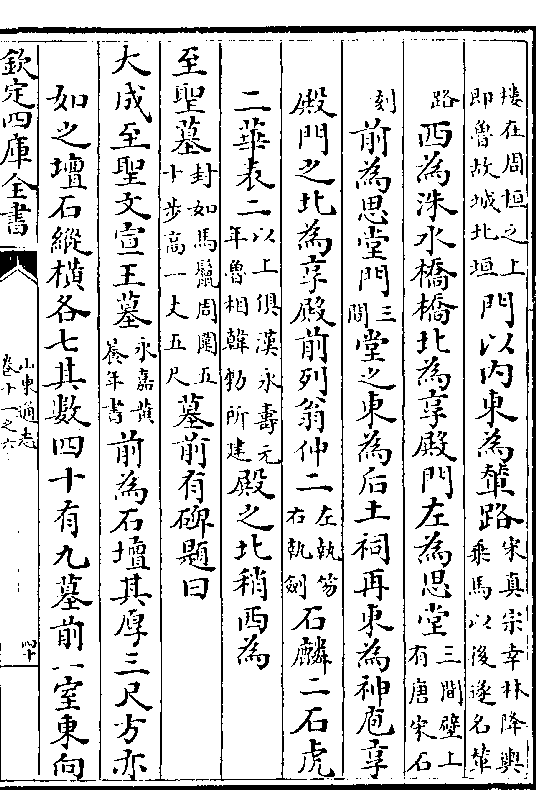 樓在周恒之上即魯故城北垣門以内東為輦路宋真宗幸林降輿乘馬以後遂名輦
路西為洙水橋橋北為享殿門左為思堂三間壁上有唐宋石
刻前為思堂門三間堂之東為后土祠再東為神庖享
殿門之北為享殿前列翁仲二左執笏右執劍石麟二石虎
二華表二以上俱漢永壽元年魯相韓勅所建殿之北稍西為
至聖墓封如馬鬛周闊五十步高一丈五尺墓前有碑題曰
大成至聖文宣王墓永嘉黃養年書前為石壇其厚三尺方亦
如之壇石縱橫各七其數四十有九墓前一室東向
欽定四庫全書
山東通志
卷十一之六
四十